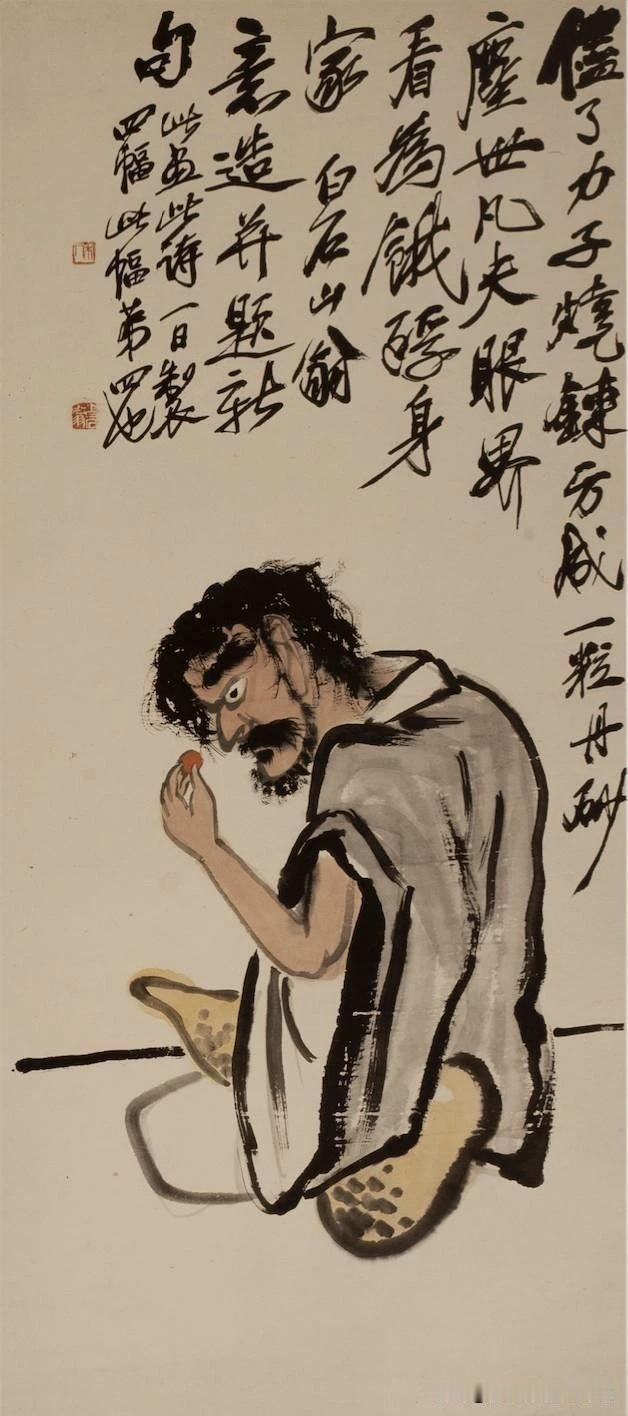 儘了力子燒鍊方成一粒丹砂
塵世凡夫眼界
看為餓殍身
家 白石山翁
意造并題新
句 此画此詩一日製
四幅此幅第四也